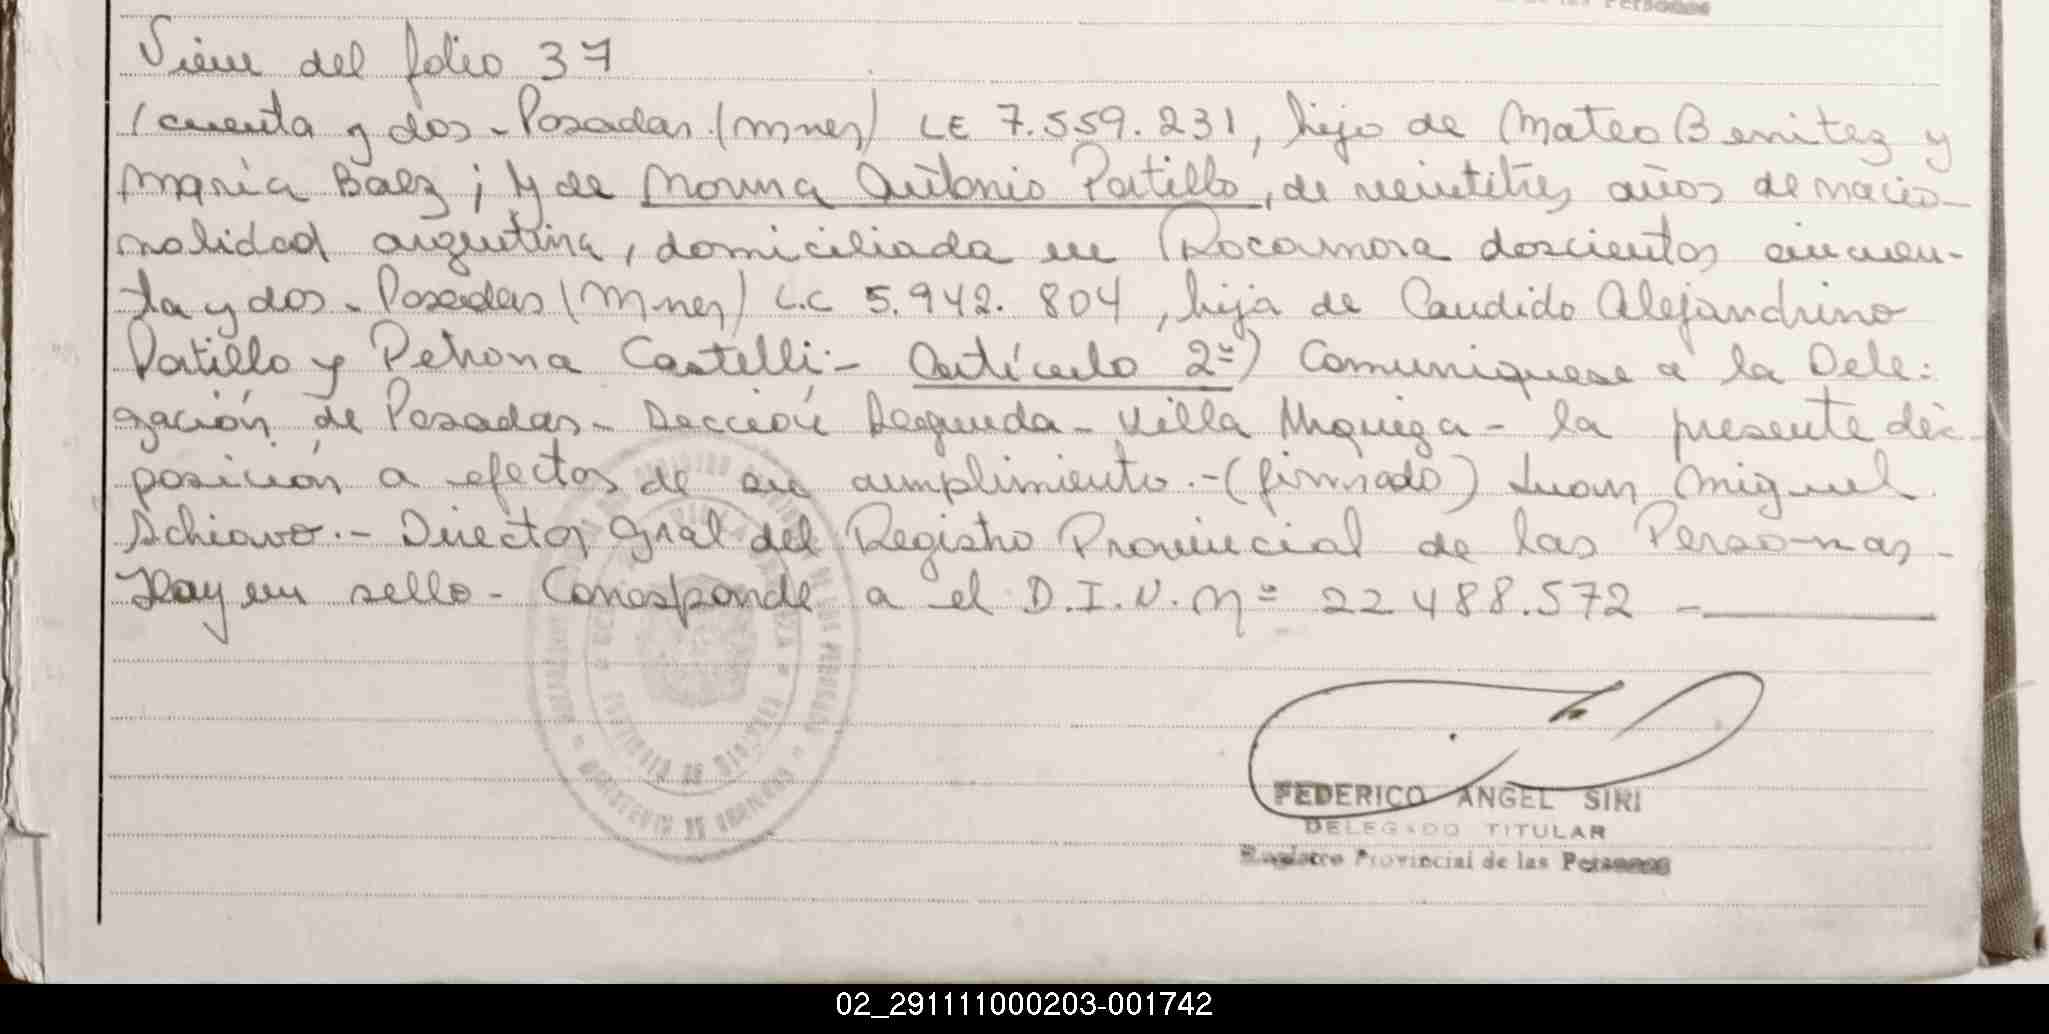 de las Personas
Viene del folio 37
/cuenta y dos - Posadas (Mnes) LE 7.559.231, hijo de Mateo Benitez y
María Baez; y de Norma Antonia Portillo, de veintitres años de nacio-
nalidad argentina, domiciliada en Rocamora doscientos cincuen-
ta y dos - Posadas (Mnes) L.C 5.942.804, hija de Candido Alejandrino
Portillo y Petrona Castelli.- Artículo 2º) Comuniquese a la Dele-
gación de Posadas - Sección Segunda - Villa Urquiza - la presente dis-
posición a efectos de su cumplimiento.- (firmado) Juan Miguel
Schiavo.- Director Gral del Registro Provincial de las Personas -
Hay un sello - Corresponde a el D.I.N. Nº 22 488.572 -
FEDERICO ANGEL SIRI
DELEGADO TITULAR
Registro Provincial de las Personas
02_291111000203-001742